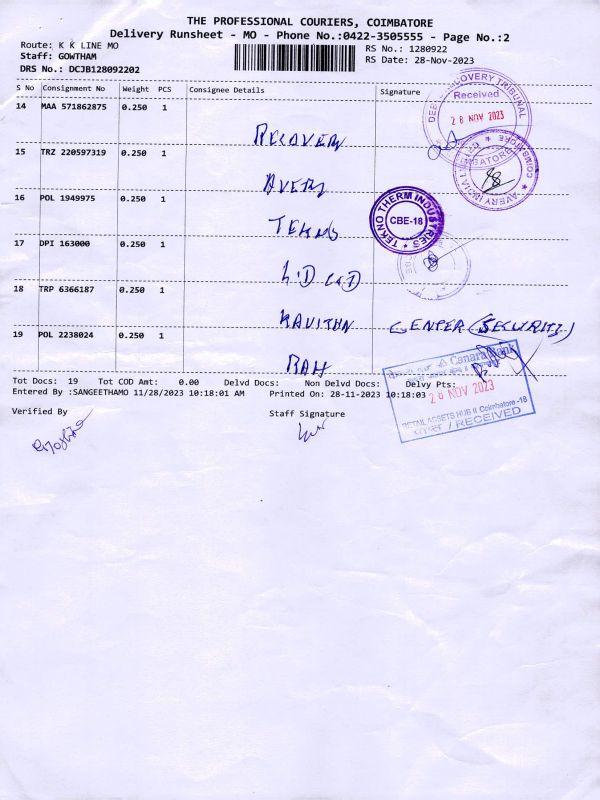 THE PROFESSIONAL COURIERS, COIMBATORE
Delivery Runsheet - MO - Phone No.:0422-3505555 - Page No.:2
Route: K K LINE MO
RS No.: 1280922
Staff: GOWTHAM
RS Date: 28-Nov-2023
DRS No.: DCJB128092202
S No Consignment No Weight PCS Consignee Details Signature
14 MAA 571862875 0.250 1
RECOVERY
DEBT RECOVERY TRIBUNAL
Received
28 NOV 2023
15 TRZ 220597319 0.250 1
AVERY
COIMBATORE
16 POL 1949975 0.250 1
TEKNO
TEKNO THERM INDUSTRIES
CBE-18
17 DPI 163000 0.250 1
LID
18 TRP 6366187 0.250 1
KAVITHA CENTER (SECURITY)
19 POL 2238024 0.250 1
Canara Bank
28 NOV 2023
RETAIL ASSETS HUB II Coimbatore -18
/ RECEIVED
Tot Docs: 19 Tot COD Amt: 0.00 Delvd Docs: Non Delvd Docs: Delvy Pts:
Entered By :SANGEETHAMO 11/28/2023 10:18:01 AM Printed On: 28-11-2023 10:18:03
Verified By Staff Signature